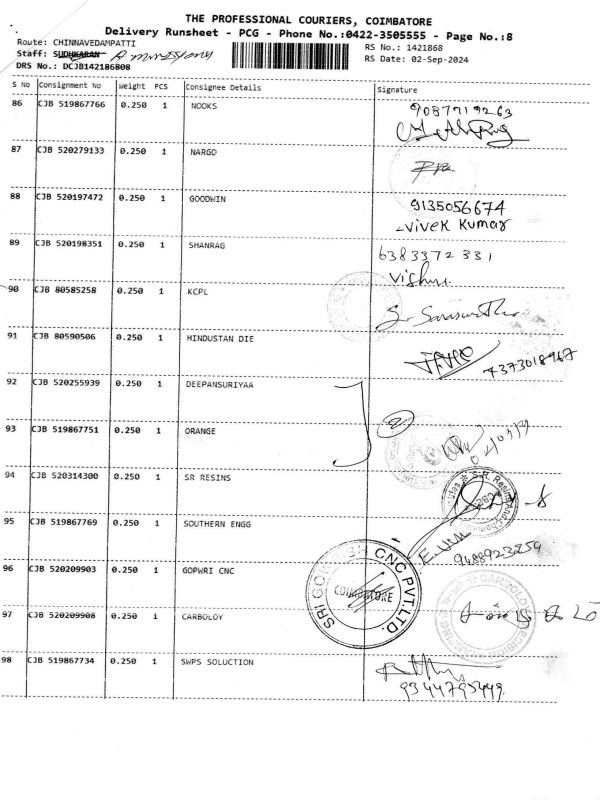 THE PROFESSIONAL COURIERS, COIMBATORE
Delivery Runsheet - PCG - Phone No.:0422-3505555 - Page No.:8
Route: CHINNAVEDAMPATTI RS No.: 1421868
Staff: SUDHKARAN RS Date: 02-Sep-2024
DRS No.: DCJB142186808
S No Consignment No Weight PCS Consignee Details Signature
86 CJB 519867766 0.250 1 NOOKS 9087719263
87 CJB 520279133 0.250 1 NARGO
88 CJB 520197472 0.250 1 GOODWIN 9135056674
Vivek Kumar
89 CJB 520198351 0.250 1 SHANRAG 6383372331
90 CJB 80585258 0.250 1 KCPL
91 CJB 80590506 0.250 1 HINDUSTAN DIE 7373018967
92 CJB 520255939 0.250 1 DEEPANSURIYAA
93 CJB 519867751 0.250 1 ORANGE
94 CJB 520314300 0.250 1 SR RESINS
95 CJB 519867769 0.250 1 SOUTHERN ENGG 9488923254
96 CJB 520209903 0.250 1 GOPWRI CNC
COIMBATORE
97 CJB 520209908 0.250 1 CARBOLOY
98 CJB 519867734 0.250 1 SWPS SOLUCTION
9344795449